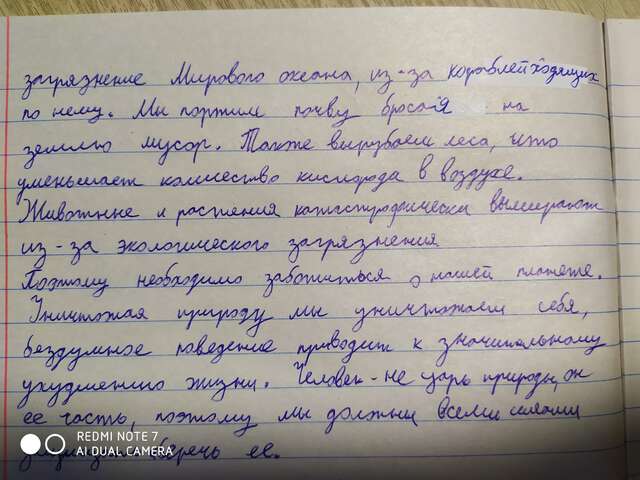 загрязнение Мирового океана, из-за кораблей ходящих
по нему. Мы портим почву бросая на
землю мусор. Также вырубаем леса, что
уменьшает количество кислорода в воздухе.
Животные и растения катастрофически вымирают
из-за экологического загрязнения
Поэтому необходимо заботиться о нашей планете.
Уничтожая природу мы уничтожаем себя,
бездумное поведение приводит к значительному
ухудшению жизни. Человек-не царь природы, он
её часть, поэтому мы должны всеми силами
беречь ее.
REDMI NOTE 7
AI DUAL CAMERA